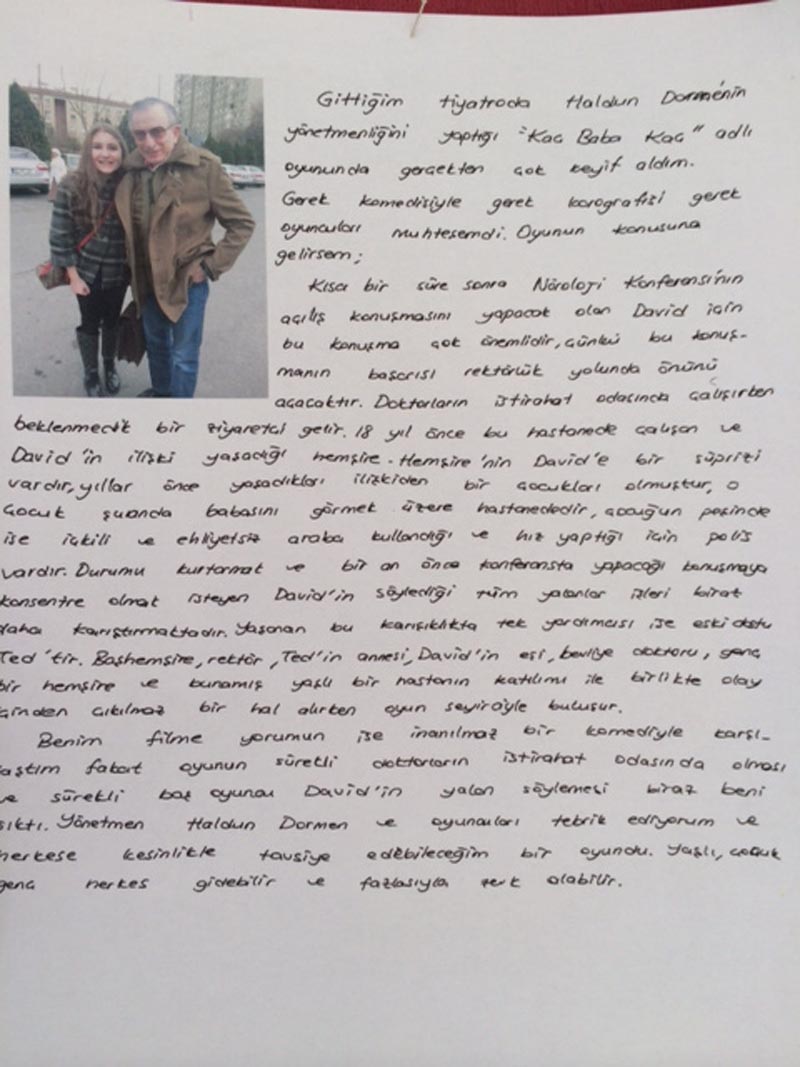 Gittiğim tiyatroda Haldun Dormen'in
yönetmenliğini yaptığı "Kac Baba Kac" adlı
oyununda gerçekten çok keyif aldım.
Gerek komedisiyle gerek korografisi gerek
oyuncuları muhteşemdi. Oyunun konusuna
gelirsem;
Kısa bir süre sonra Nöroloji Konferansı'nın
açılış konuşmasını yapacak olan David için
bu konuşma çok önemlidir, çünkü bu konuş-
manın başarısı rektörlük yolunda önünü
açacaktır. Doktorların istirahat odasında çalışırken
beklenmedik bir ziyaretçi gelir. 18 yıl önce bu hastanede çalışan ve
David'in ilişki yaşadığı hemşire. Hemşire'nin David'e bir süprizi
vardır, yıllar önce yaşadıkları ilişkiden bir çocukları olmuştur, o
çocuk şuanda babasını görmek üzere hastanededir, çocuğun peşinde
ise içkili ve ehliyetsiz araba kullandığı ve hız yaptığı için polis
vardır. Durumu kurtarmak ve bir an önce konferansta yapacağı konuşmaya
konsentre olmak isteyen David'in söylediği tüm yalanlar işleri birat
daha karıştırmaktadır. Yaşanan bu karışıklıkta tek yardımcısı ise eski dostu
Ted'tir. Başhemşire, rektör, Ted'in annesi, David'in eşi, bevliye doktoru, genç
bir hemşire ve bunamış yaşlı bir hastanın katılımı ile birlikte olay
içinden çıkılmaz bir hal alırken oyun seyirciyle buluşur.
Benim filme yorumun ise inanılmaz bir komediyle karşı-
laştım fakat oyunun sürekli doktorların istirahat odasında olması
ve sürekli baş oyuncu David'in yalan söylemesi biraz beni
sıktı. Yönetmen Haldun Dormen ve oyuncuları tebrik ediyorum ve
herkese kesinlikle tavsiye edebileceğim bir oyundu. Yaşlı, çocuk
genç herkes gidebilir ve fazlasıyla zevk alabilir.